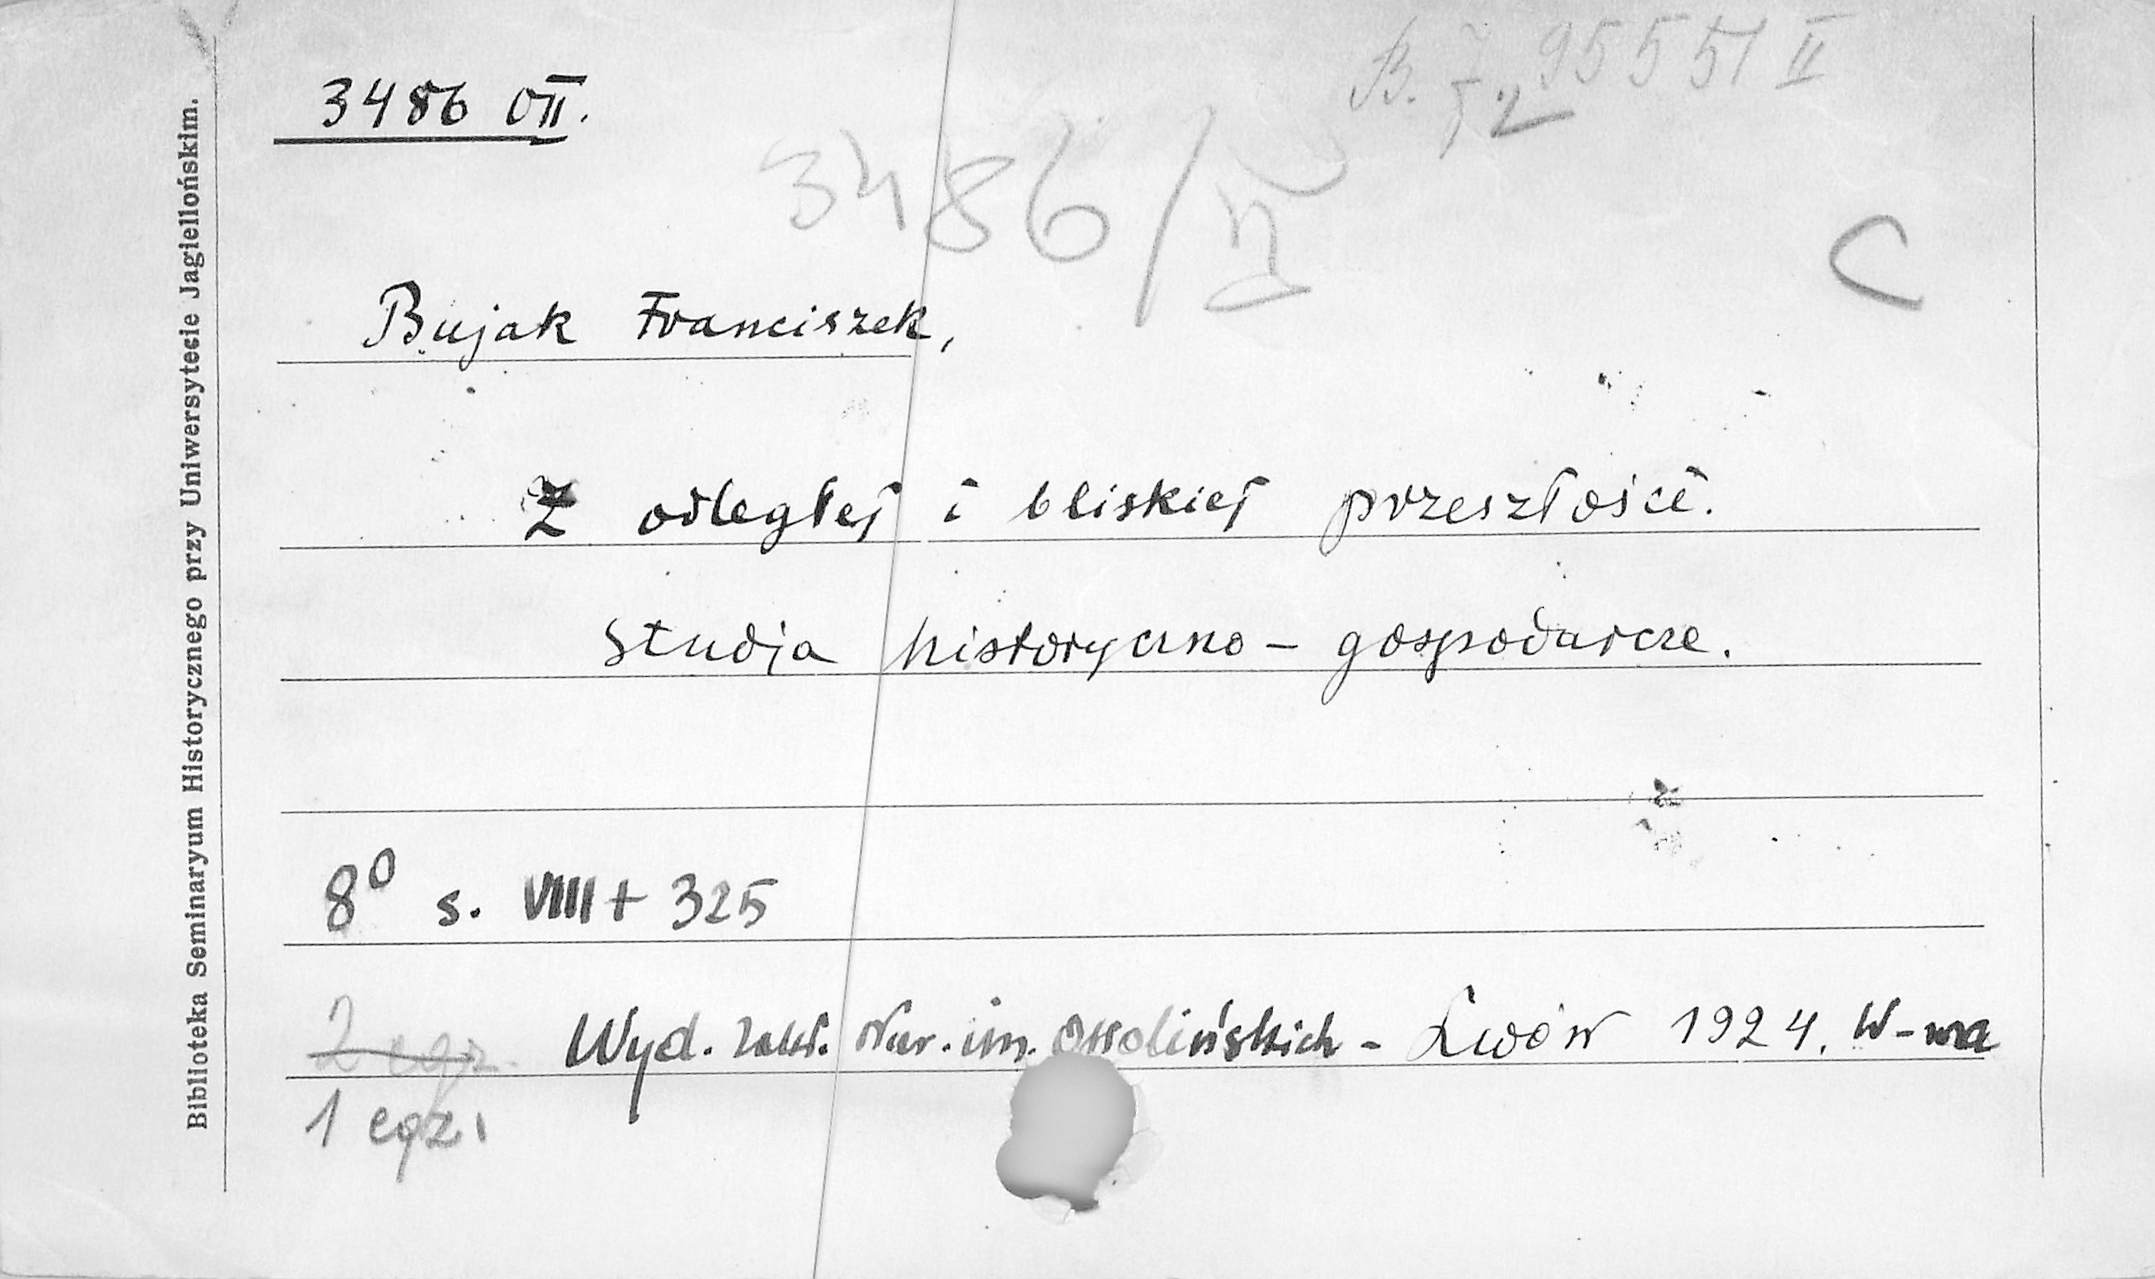 3486 OII.
B. J. 95551 II
3486/II
C
Bujak Franciszek,
Z odległej i bliskiej przeszłości.
Studja historyczno - gospodarcze.
8° s. VIIII + 325
2 egz.
Wyd. Zakł. Nar. im. Ossolińskich - Lwów 1924. W-wa
1 egz.
Biblioteka Seminaryum Historycznego przy Uniwersytecie Jagiellońskim.